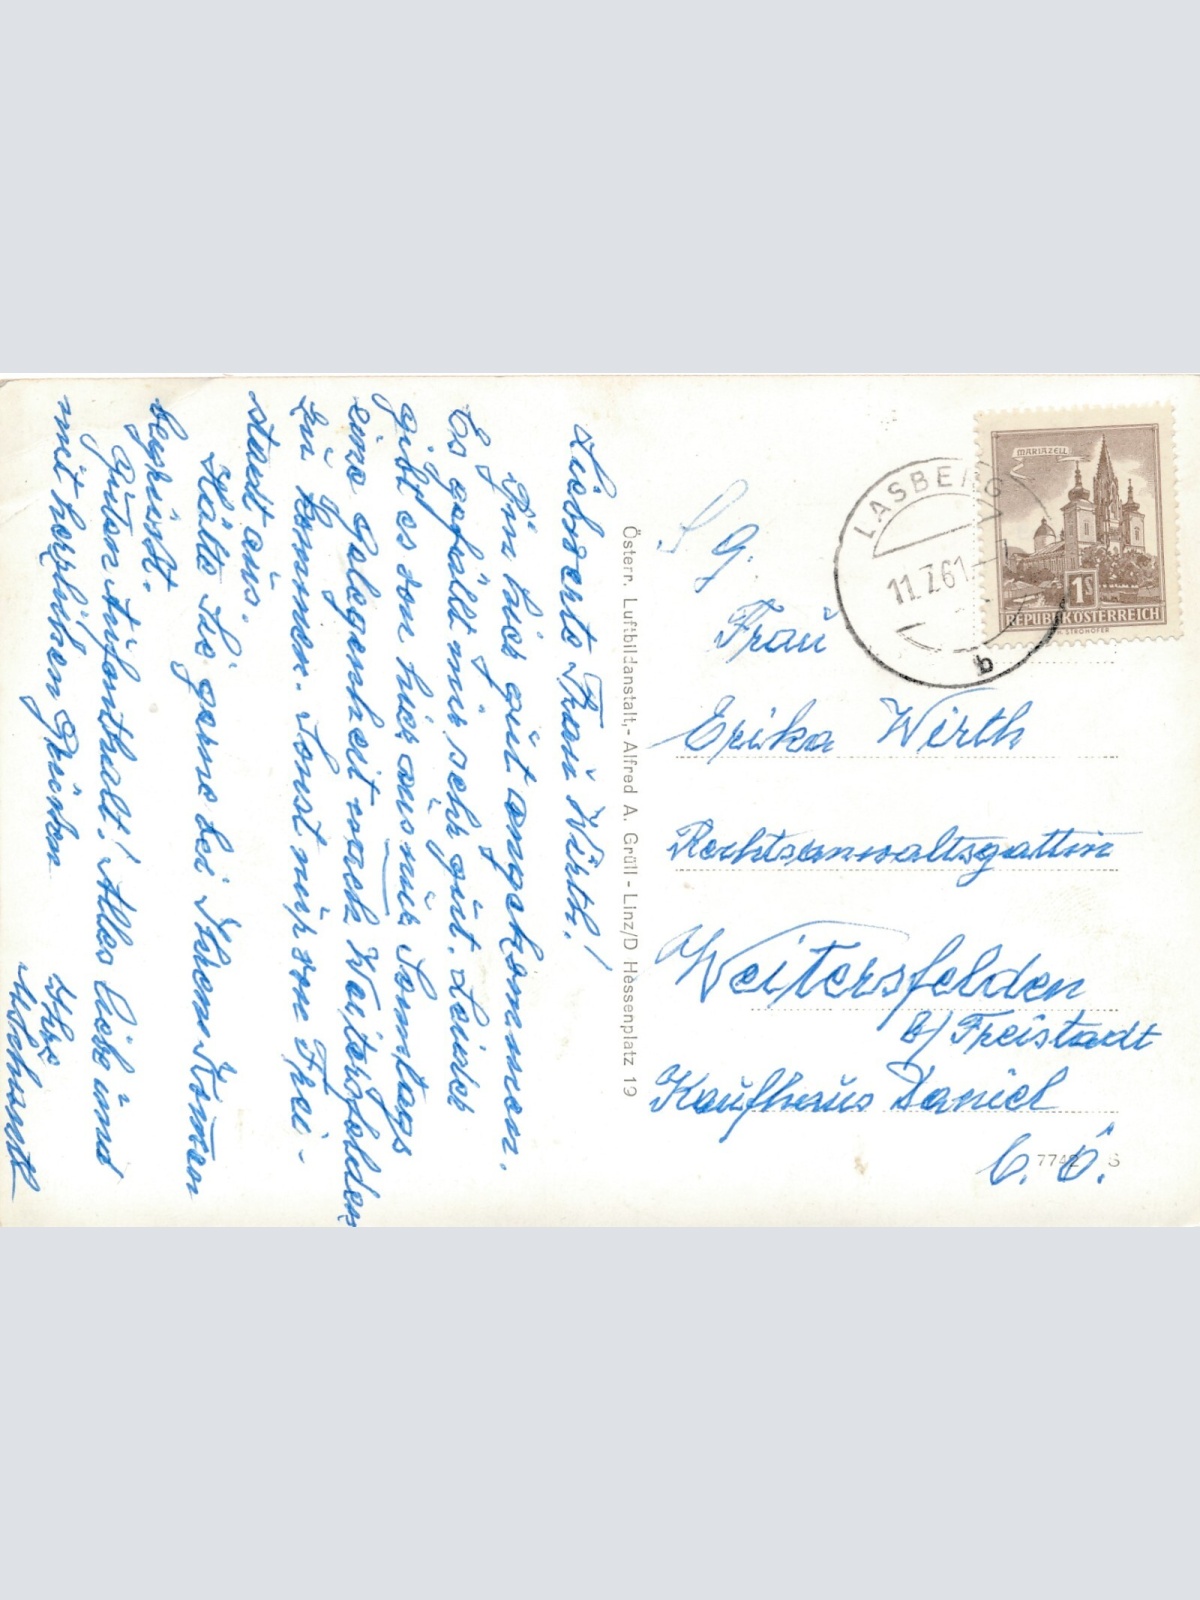 Liebwerte Frau Wirth!
Bin hier gut angekommen.
Es gefällt mir sehr gut. Leider
gibt es von hier aus nur Sonntags
eine Gelegenheit nach Weitersfelden
zu kommen. Sonst nur von Frei-
stadt aus.
Hätte Sie gerne bei Ihrem
begrüsst.
Guten Aufenthalt! Alles Liebe und
mit herzlichen Grüßen
Ihre
Österr. Luftbildanstalt,- Alfred A. Grüll - Linz/D Hessenplatz 19
MARIAZELL
1S
REPUBLIK ÖSTERREICH
STROHOFER
LASBERG
11.7.61
b
S. g.
Frau
Erika Wirth
Rechtsanwaltsgattin
Weitersfelden
b/ Freistadt
Kaufhaus Daniel
O. Ö.